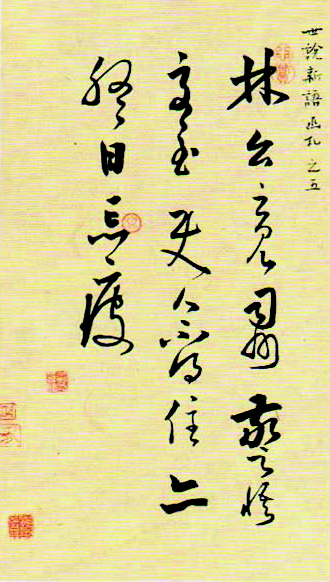 世說新語札之五
林公云見司州警悟
交至使人不得住亦
終日忘疲